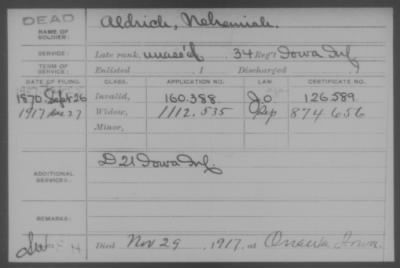 DEAD
NAME OF SOLDIER: Aldrich, Nehemiah.
SERVICE: Late rank, unass'd 34 Reg't Iowa Inf
TERM OF SERVICE: Enlisted , 1 Discharged , 1
DATE OF FILING. CLASS. APPLICATION NO. LAW. CERTIFICATE NO.
1870 Sept 26 Invalid, 160.388 J.O. 126589.
1917 27 Widow, 1112.535 874656
Minor,
ADDITIONAL SERVICES: D 21 Iowa Inf.
REMARKS:
Died Nov 29, 1917, at Onawa Iowa.